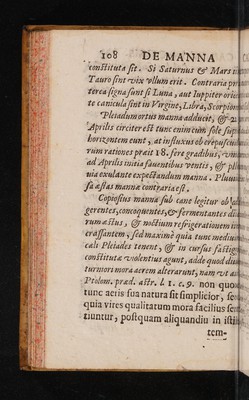 108 DE MANNA
constituta sit. Si Saturnus & Mars in
Tauro sint vix ullum erit. Contraria præ
terea signa sunt si Luna, aut Iuppiter orien
te canicula sint in Virgine, Libra, Scorpione
Pleiadum ortus manna adducit, &
Aprilis circiter est tunc enim cum sole supra
horizontem eunt, at influxus ob crepusculi
rum rationes præit 18. fere gradibus,
ad Aprilis initia faventibus ventis, & plu
via exulante expectandum manna. Pluvio
sa æstas mannæ contraria est.
Copiosius manna sub cane legitur ob
gerentes, concoquentes, & fermentantes di
rum æstus, & noctium refrigerationem
crassantem, sed maxime quia tunc medium
cæli Pleiades tenent, & in cursus fastigi
constitutæ violentius agunt, adde quod diu
turniori mora aerem alterarunt, nam ut
Ptolom. præd. astr. l. 1. c. 9. non quod
tunc aeris sua natura sit simplicior, sed
quia vires qualitatum mora facilius sen
tiuntur, postquam aliquandiu in
tem-